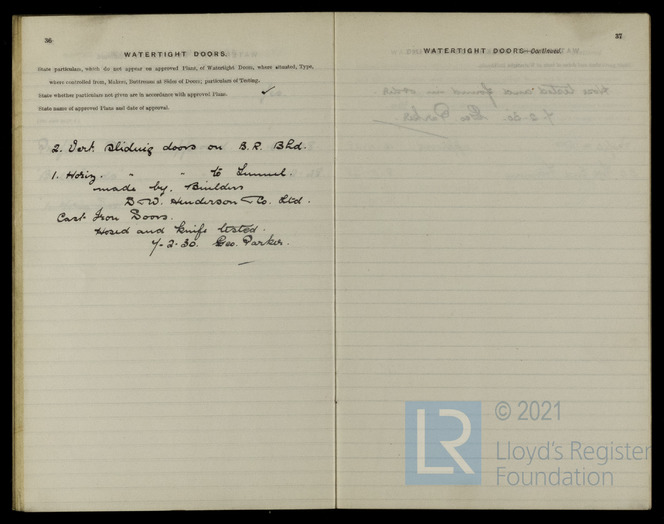 36
WATERTIGHT DOORS.
State particulars, which do not appear on approved Plans, of Watertight Doors, where situated, Type,
where controlled from, Makers, Buttresses at Sides of Doors; particulars of Testing.
State whether particulars not given are in accordance with approved Plans. ✓
State name of approved Plans and date of approval.
2. Vert. Sliding doors on B.R. Bhd.
1. Horiz. " " to Tunnel.
made by. Builders
D W. Henderson Co. Ltd.
Cast Iron Doors.
Hosed and knife tested.
7-2-30. Geo. Parker.
37
WATERTIGHT DOORS—Continued.
LR
© 2021
Lloyd's Register
Foundation